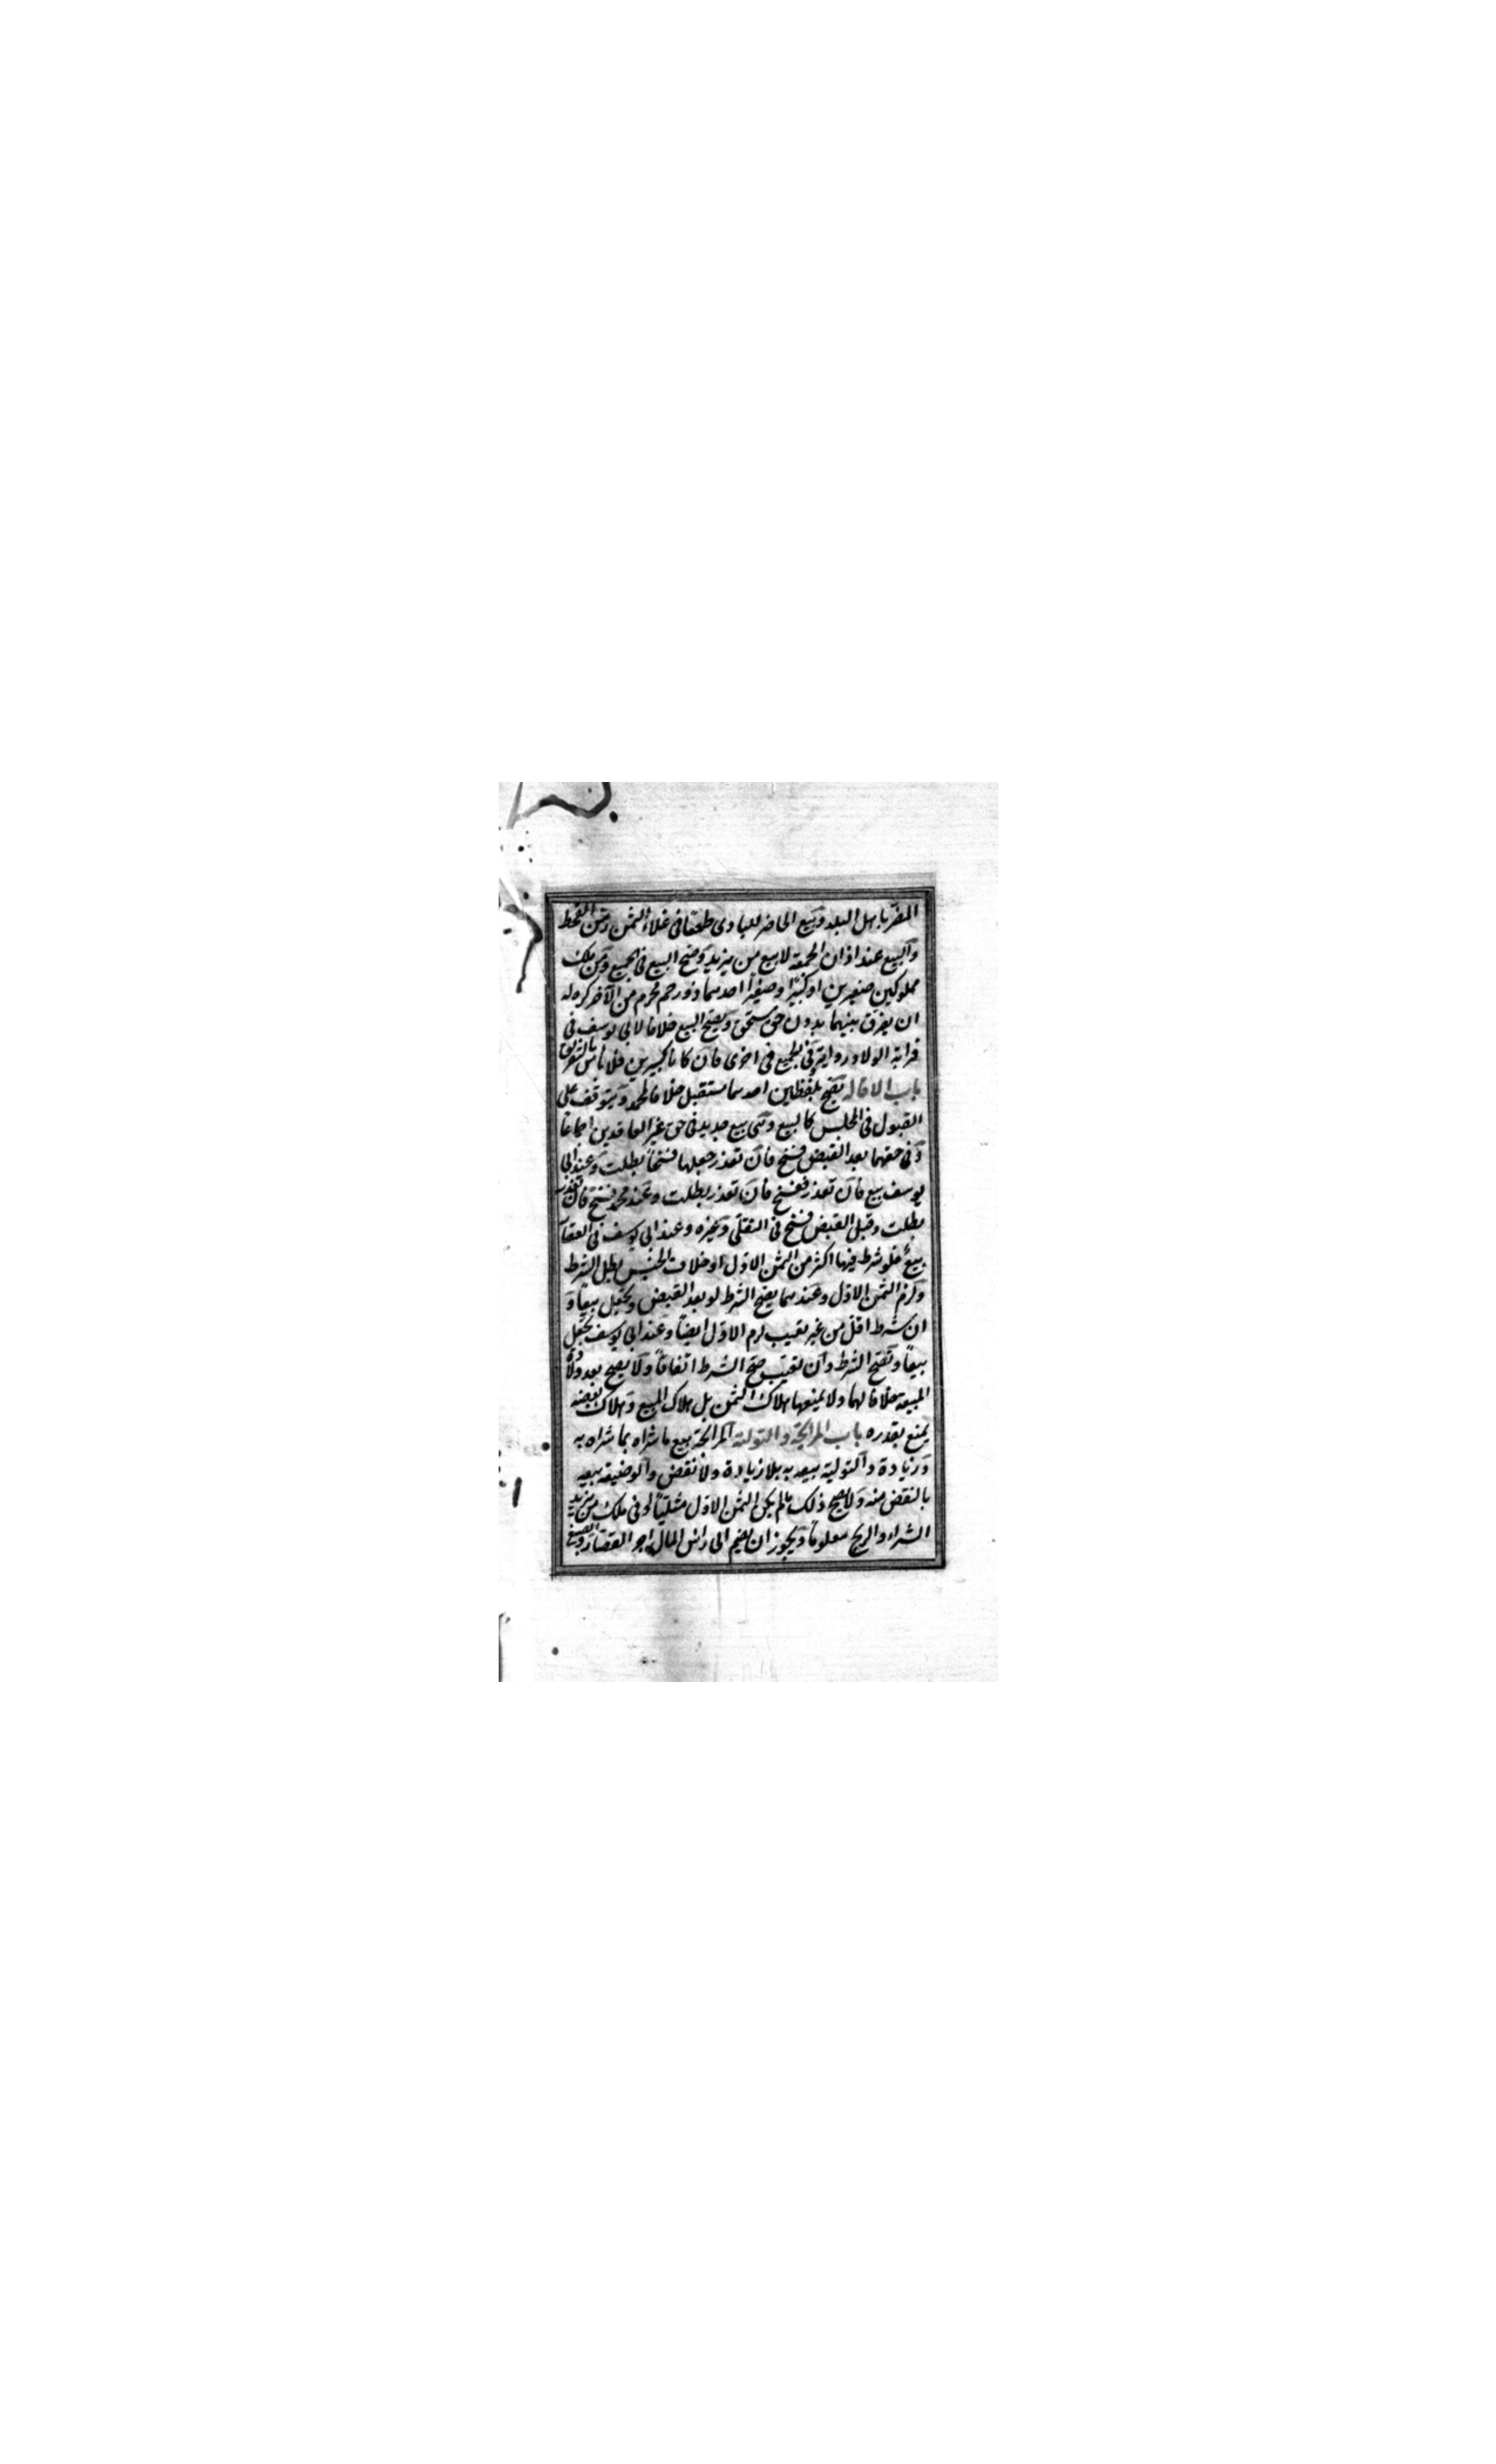 المضر باهل البلد وبيع الحاضر للبادى طمعا فى غلاء الثمن زمن القحط
والبيع عند اذان الجمعة لا بيع من يزيد وصح البيع فى الجميع ومن ملك
مملوكين صغيرين او كبيرًا وصغيرًا احدهما ذو رحم محرم من الآخر كره له
ان يفرق بينهما بدون حق مستحق ويصح البيع خلافا لابى يوسف فى
قرابة الولاد رواية وفى الجميع فى اخرى فان كانا كبيرين فلا بأس بالتفريق
باب الاقالة تصح بلفظين احدهما مستقبل خلافا لمحمد ويتوقف على
القبول فى المجلس كالبيع وهى بيع جديد فى حق غير العاقدين اجماعا
وفى حقهما بعد القبض فسخ فان تعذر جعلها فسخًا بطلت وعند ابى
يوسف بيع فان تعذر ففسخ فان تعذر بطلت وعند محمد فسخ فان تعذر
بطلت وقبل القبض فسخ فى النقلى وغيره وعند ابى يوسف فى العقار
بيعٌ فلو شرط فيها اكثر من الثمن الاول او خلاف الجنس بطل الشرط
ولزم الثمن الاول وعندهما يصح الشرط لو بعد القبض ويجعل بيعًا و
ان شرط اقل من غير تعيب لزم الاول ايضًا وعند ابى يوسف يجعل
بيعًا ويصح الشرط وان تعيب صح الشرط اتفاقًا ولا يصح بعد ولادة
المبيعة خلافا لهما ولا يمنعها هلاك الثمن بل هلاك المبيع وهلاك بعضه
يمنع بقدره باب المرابحة والتولية المرابحة بيع ما شراه بما شراه به
وزيادة والتولية بيعه به بلا زيادة ولا نقص والوضيعة بيعه
بالنقص منه ولا يصح ذلك مالم يكن الثمن الاول مثليًّا او فى ملك من يريد
الشراء والربح معلومًا ويجوز ان يضم الى رأس المال اجر القصار والصبغ